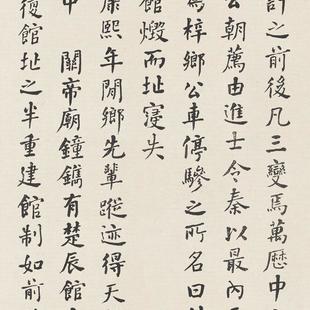 計之前後凡三變焉萬歷中
公朝薦由進士令秦以最內
焉梓鄉公車停驂之所名曰
館燬而址寖失
康熙年間鄉先輩蹤迹得天
中　關帝廟鐘鐫有楚辰館
復館址之半重建館制如前